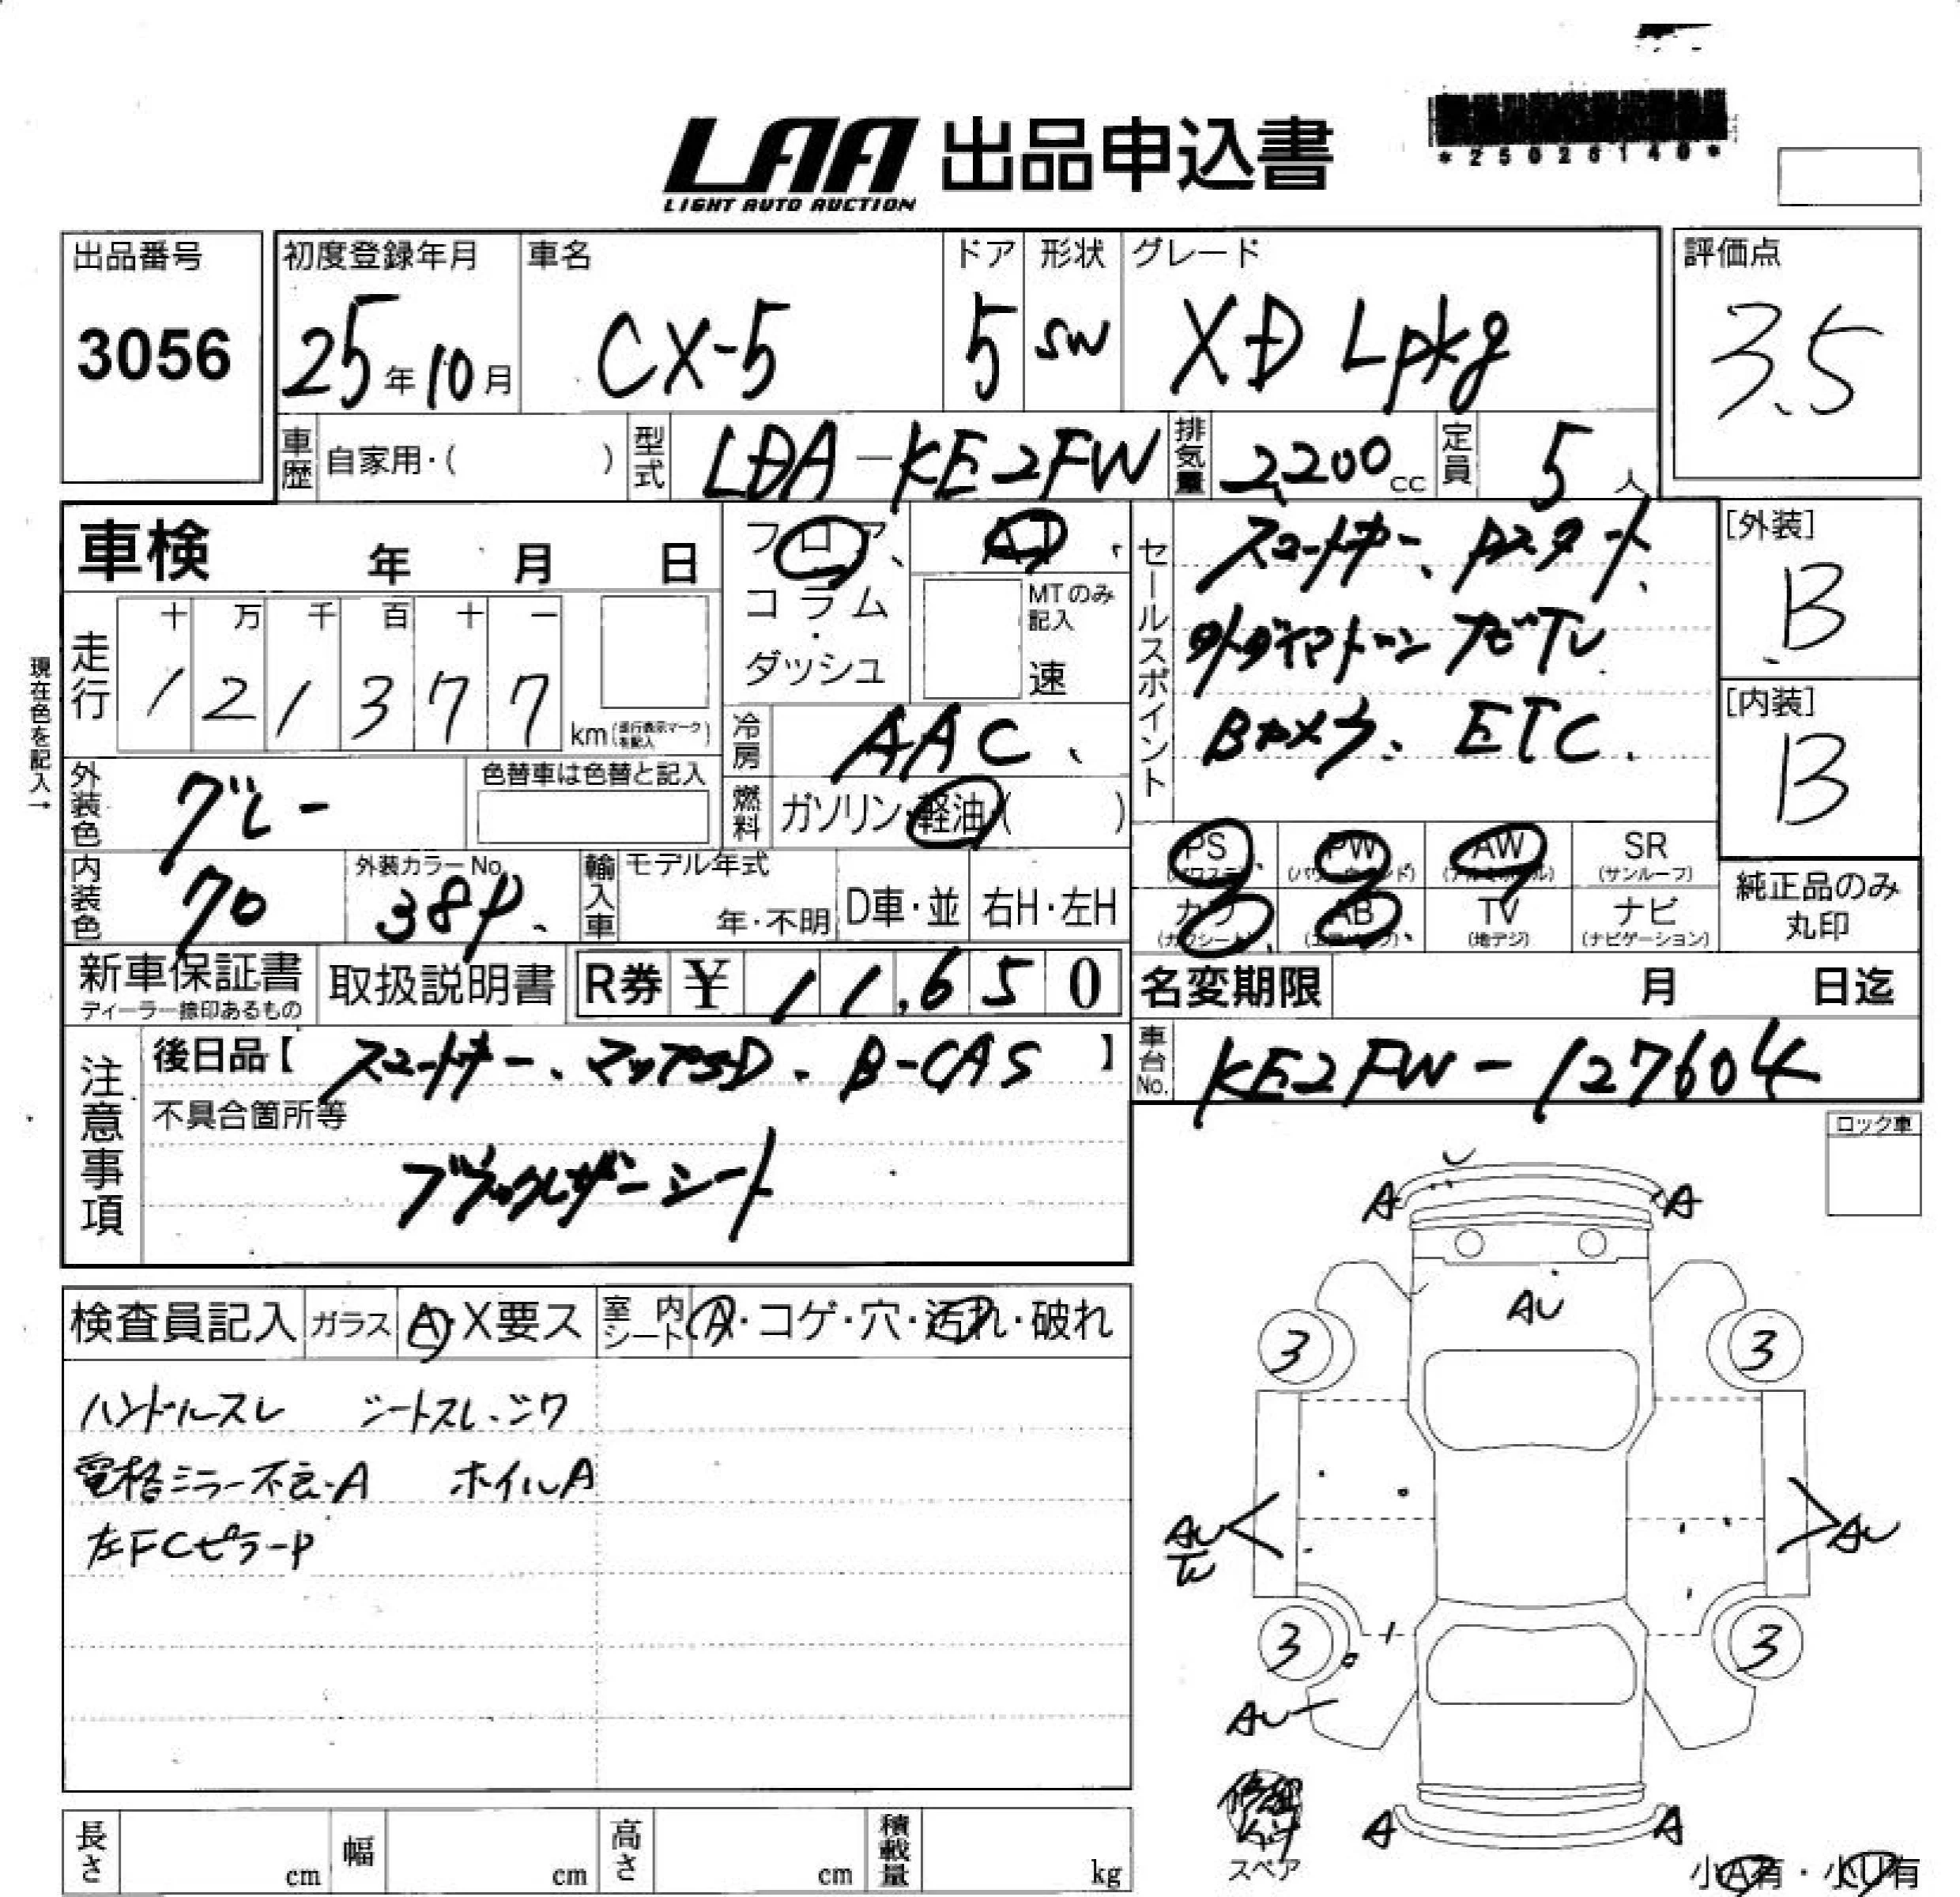 LAA 出品申込書
LIGHT AUTO AUCTION
*25026140*
出品番号
3056
初度登録年月
25年10月
車名
CX-5
ドア
5
形状
SW
グレード
XD Lpkg
評価点
3.5
車歴 自家用・( )
型式 LDA-KE2FW
排気量 2,200cc
定員 5人
車検 年 月 日
フロア、
コラム・
ダッシュ
AT
MTのみ記入
速
セールスポイント
スマートキー、Pスタート、
外ダイヤトーンナビTV
Bカメラ、ETC.
[外装]
B
[内装]
B
現在色を記入→
走行 十 万 千 百 十 一
1 2 1 3 7 7
km(走行表示マークを記入)
冷房 AAC、
外装色 グレー
色替車は色替と記入
燃料 ガソリン・軽油( )
内装色
外装カラーNo.
38P.
輸入車
モデル年式
年・不明
D車・並
右H・左H
PS
(パワステ)
PW
(パワーウィンド)
AW
(アルミホイル)
SR
(サンルーフ)
カワ
(カワシート)
AB
(エアバッグ)
TV
(地デジ)
ナビ
(ナビゲーション)
純正品のみ
丸印
新車保証書
ディーラー捺印あるもの
取扱説明書
R券 ¥ 11,650
名変期限 月 日迄
注意事項
後日品【 スマートキー、マップSD、B-CAS 】
車台No. KE2FW-127604
不具合箇所等
ブラックレザーシート
ロック車
検査員記入 ガラス A・X要ス 室内シート A・コゲ・穴・汚れ・破れ
ハンドルスレ シートスレ、シワ
電格ミラー不良・A ホイルA
左FCピラーP
A A
AU
3 3
AU
W
AU
3 3
AU
A A
スペア
小A有・小U有
長さ cm 幅 cm 高さ cm 積載量 kg